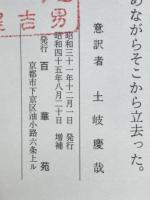 めながらそこから立去った。
意訳者　土岐慶哉
昭和三十一年十二月一日　発行
昭和四十五年八月二十日　増補
発行　百華苑
京都市下京区油小路六条上ル